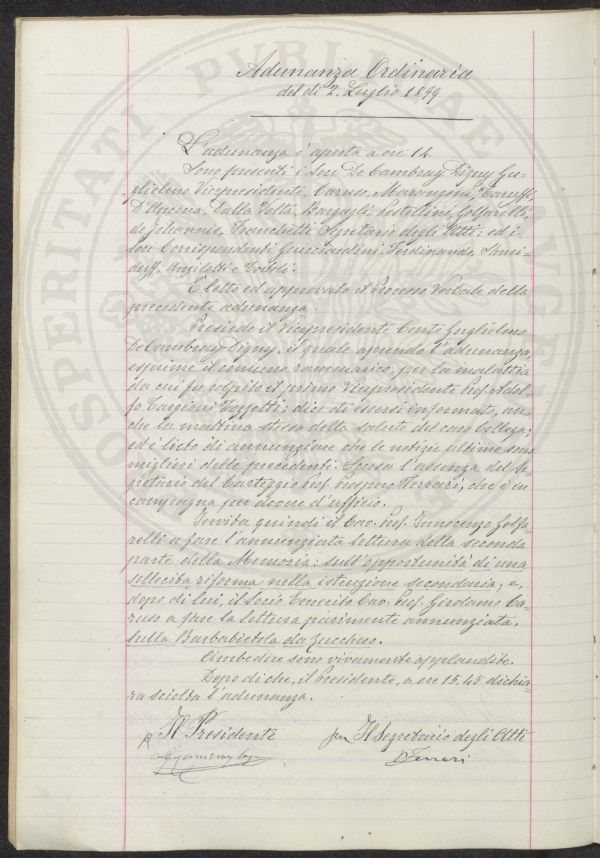 Adunanza Ordinaria
del dì 2. Luglio 1899
L'adunanza è aperta a ore 14.
Sono presenti i Soci De Cambray Digny Gu-
glielmo Vicepresidente, Caruso, Marangoni, Caruffi,
D'Ancona, Dalla Volta, Bargagli, Pestellini, Golfarelli,
de Johannis, Franchetti Segretario degli Atti; ed i
Soci Corrispondenti Guicciardini, Ferdinando,
e
È letto ed approvato il Processo Verbale della
precedente adunanza.
Presiede il Vicepresidente Conte Guglielmo
De Cambray Digny, il quale aprendo l'adunanza,
esprime il comune rammarico, per la malattia
da cui fu colpito il primo Vicepresidente Prof. Adol-
fo Targioni Tozzetti; dice di essersi informato, an-
che la mattina stessa della salute del caro Collega;
ed è lieto di annunziare che le notizie ultime sono
migliori delle precedenti. Scusa l'assenza del Se-
gretario del Carteggio Prof. Prospero Ferrari, che è in
campagna per dovere d'ufficio.
Invita quindi il Cav. Prof. Innocenzo Golfa-
relli a fare l'annunziata lettura della seconda
parte della Memoria: Sull'opportunità di una
sollecita riforma nella istruzione secondaria; e,
dopo di lui, il Socio Emerito Cav. Prof. Girolamo Ca-
ruso a fare la lettura parimente annunziata,
sulla Barbabietola da Zucchero.
Ambedue sono vivamente applaudite.
Dopo di che, il Presidente, a ore 15.45 dichia-
ra sciolta l'adunanza.
p Il Presidente per Il Segretario degli Atti
PROSPERITATI PUBLICAE AUGENDAE